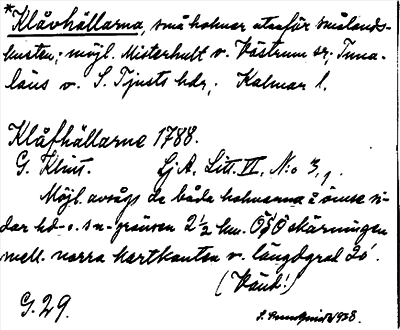 *Klåvhällarna, små holmar utanför Smålands-
kusten; möjl. Misterhult v. Västrum sr; Tuna-
läns o. S. Tjusts hdr; Kalmar l.
Klåfhällarne 1788.
G. Klint. Lj.A. Litt. VI, N:o 3,1.
Möjl. avsågs de båda holmarna å ömse si-
dor hd- o. sn-gränsen 2 ½ km. OSO skärningen
mell. norra kartkanten o. längdgrad 20'.
(Känt!)
G. 29.
1938.